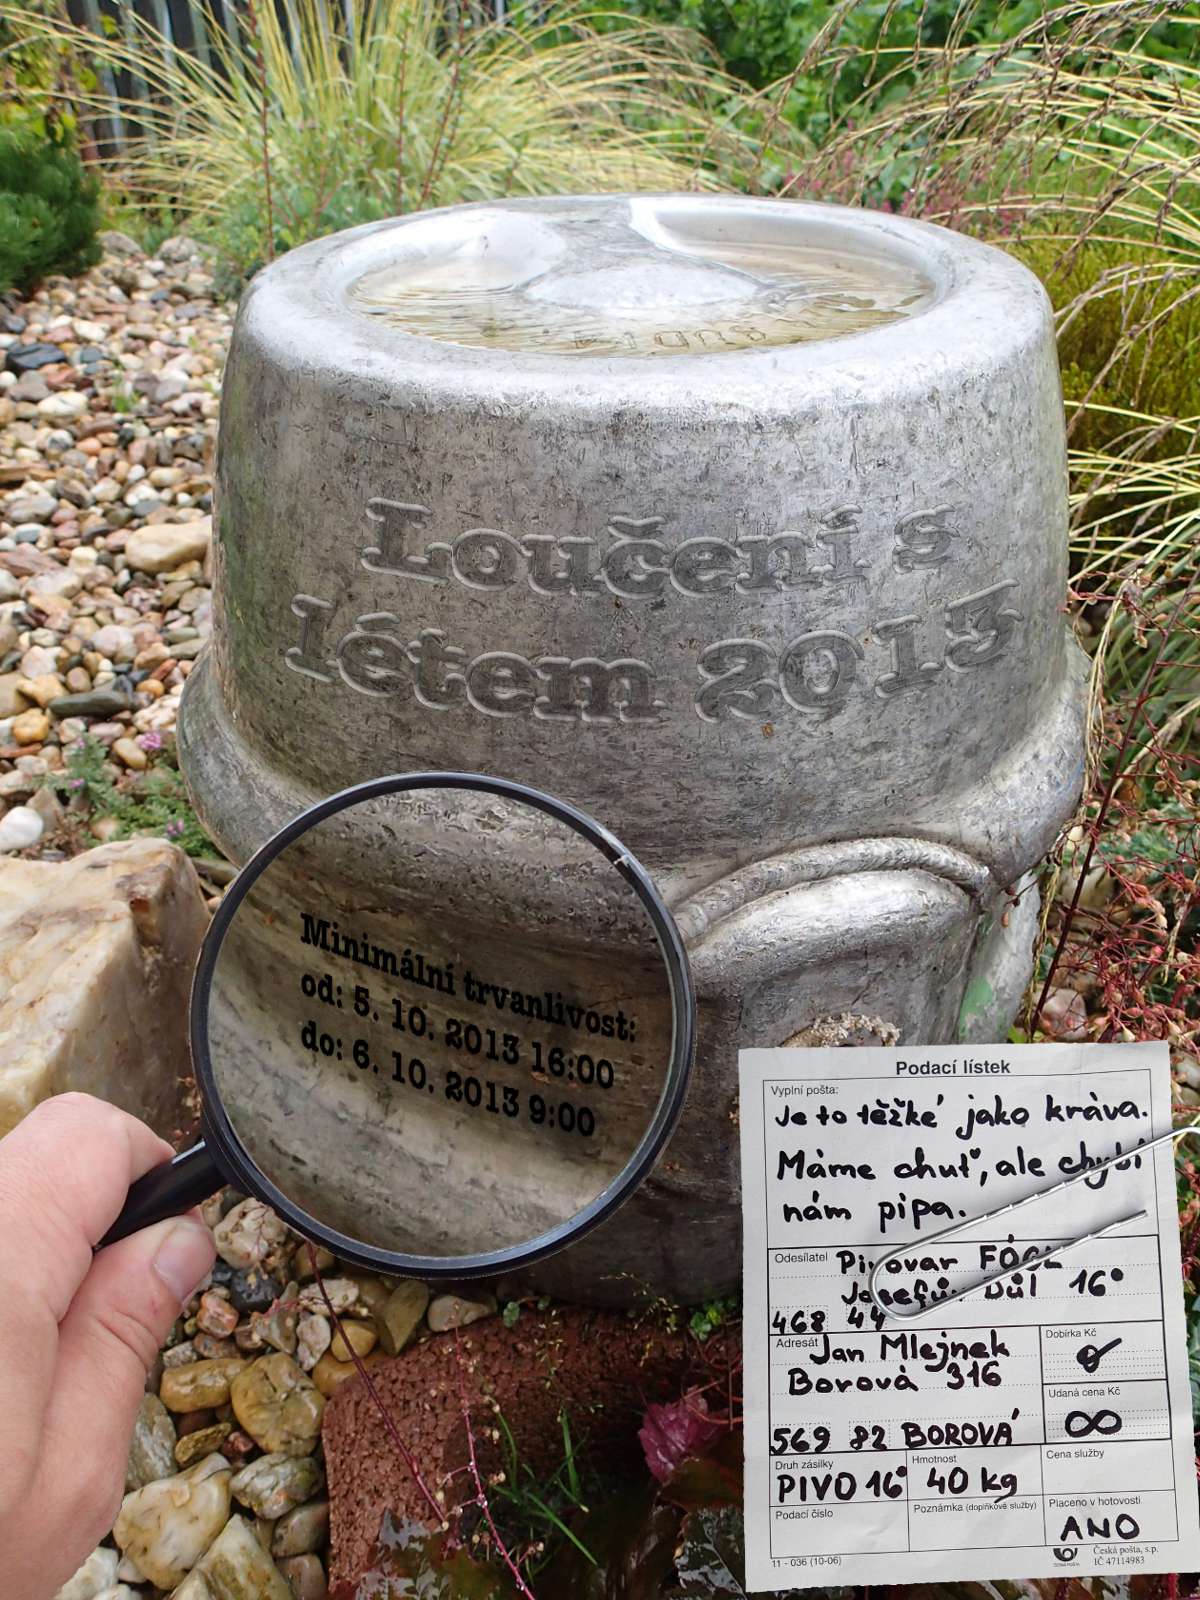 Loučení s
létem 2013
Minimální trvanlivost:
od: 5. 10. 2013 16:00
do: 6. 10. 2013 9:00
Podací lístek
Vyplní pošta:
Je to těžké jako kráva.
Máme chuť, ale chybí
nám pípa.
Odesílatel Pivovar
Josefův Důl 16°
468 44
Adresát Jan Mlejnek
Borová 316
569 82 BOROVÁ
Dobírka Kč
Udaná cena Kč
∞
Druh zásilky
PIVO 16°
Hmotnost
40 kg
Cena služby
Podací číslo
Poznámka (doplňkové služby)
Placeno v hotovosti
ANO
11 - 036 (10-06)
ČESKÁ POŠTA
Česká pošta, s.p.
IČ 47114983